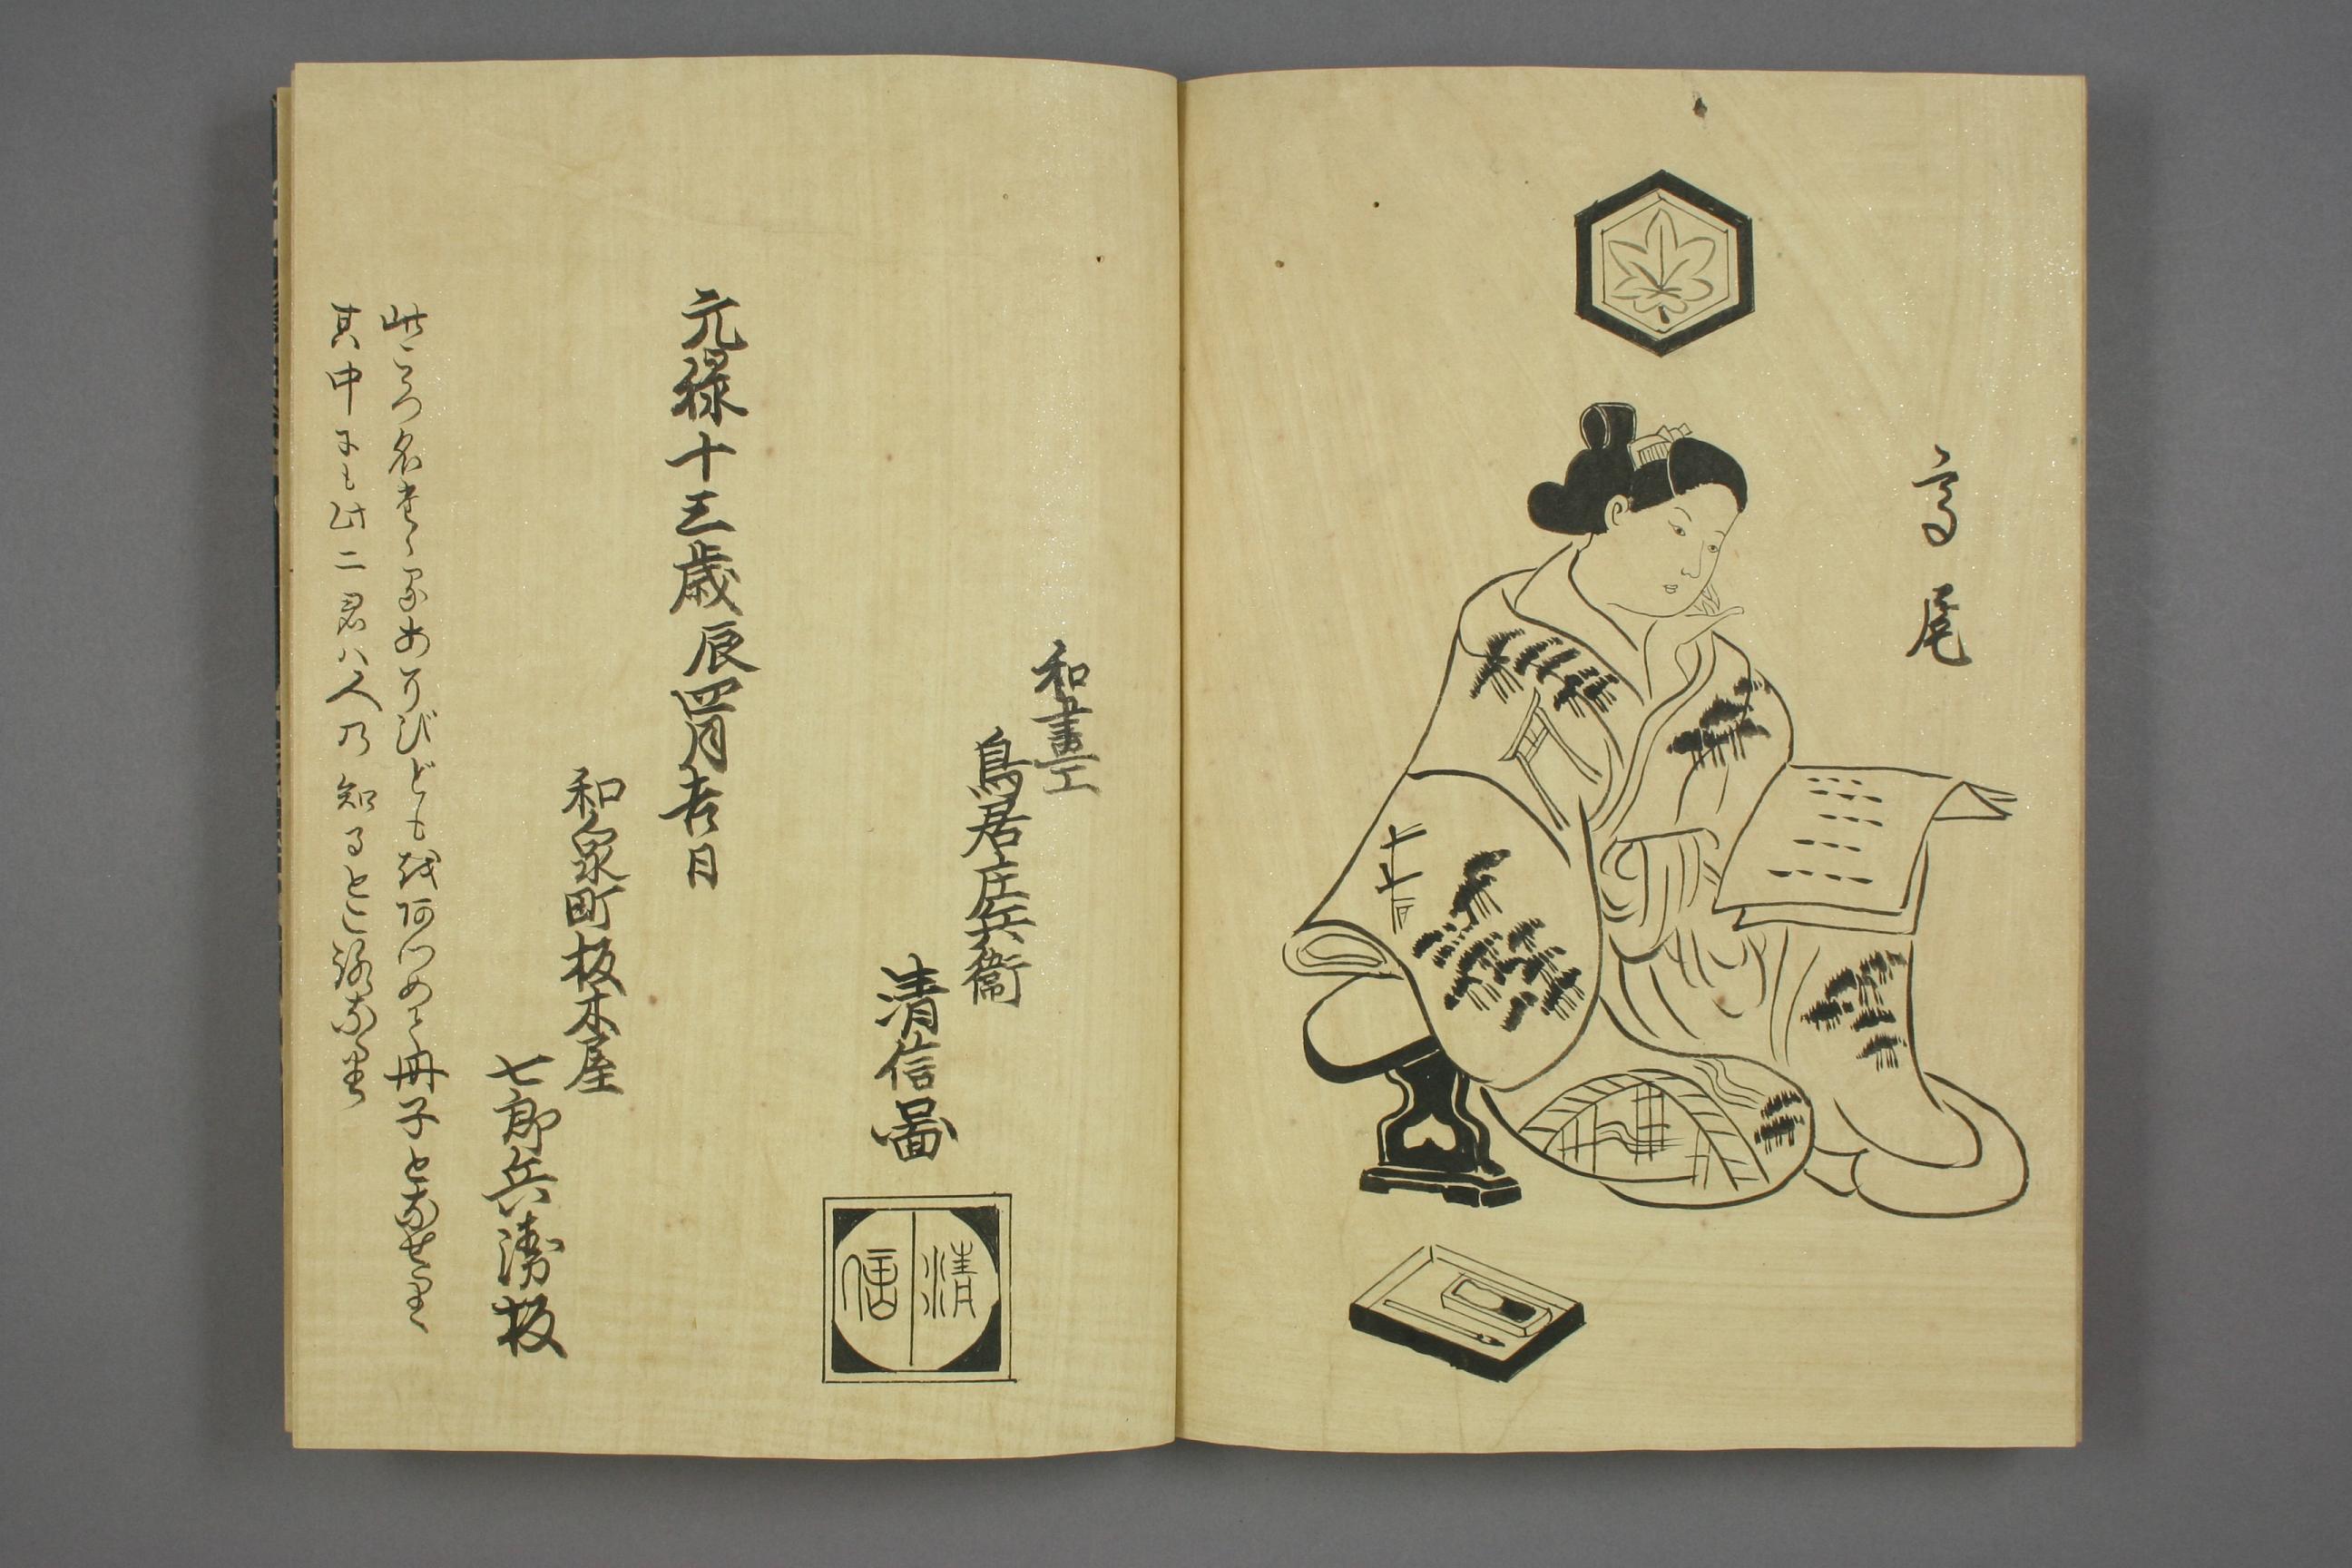 高尾
和畫工
鳥居庄兵衛
清信圖
清信
元禄十三歳辰四月吉日
和泉町板木屋
七郎兵衛板
此ころ名びども越阿つめて冊子となせり
其中にも此二君ハ人乃知るところなり